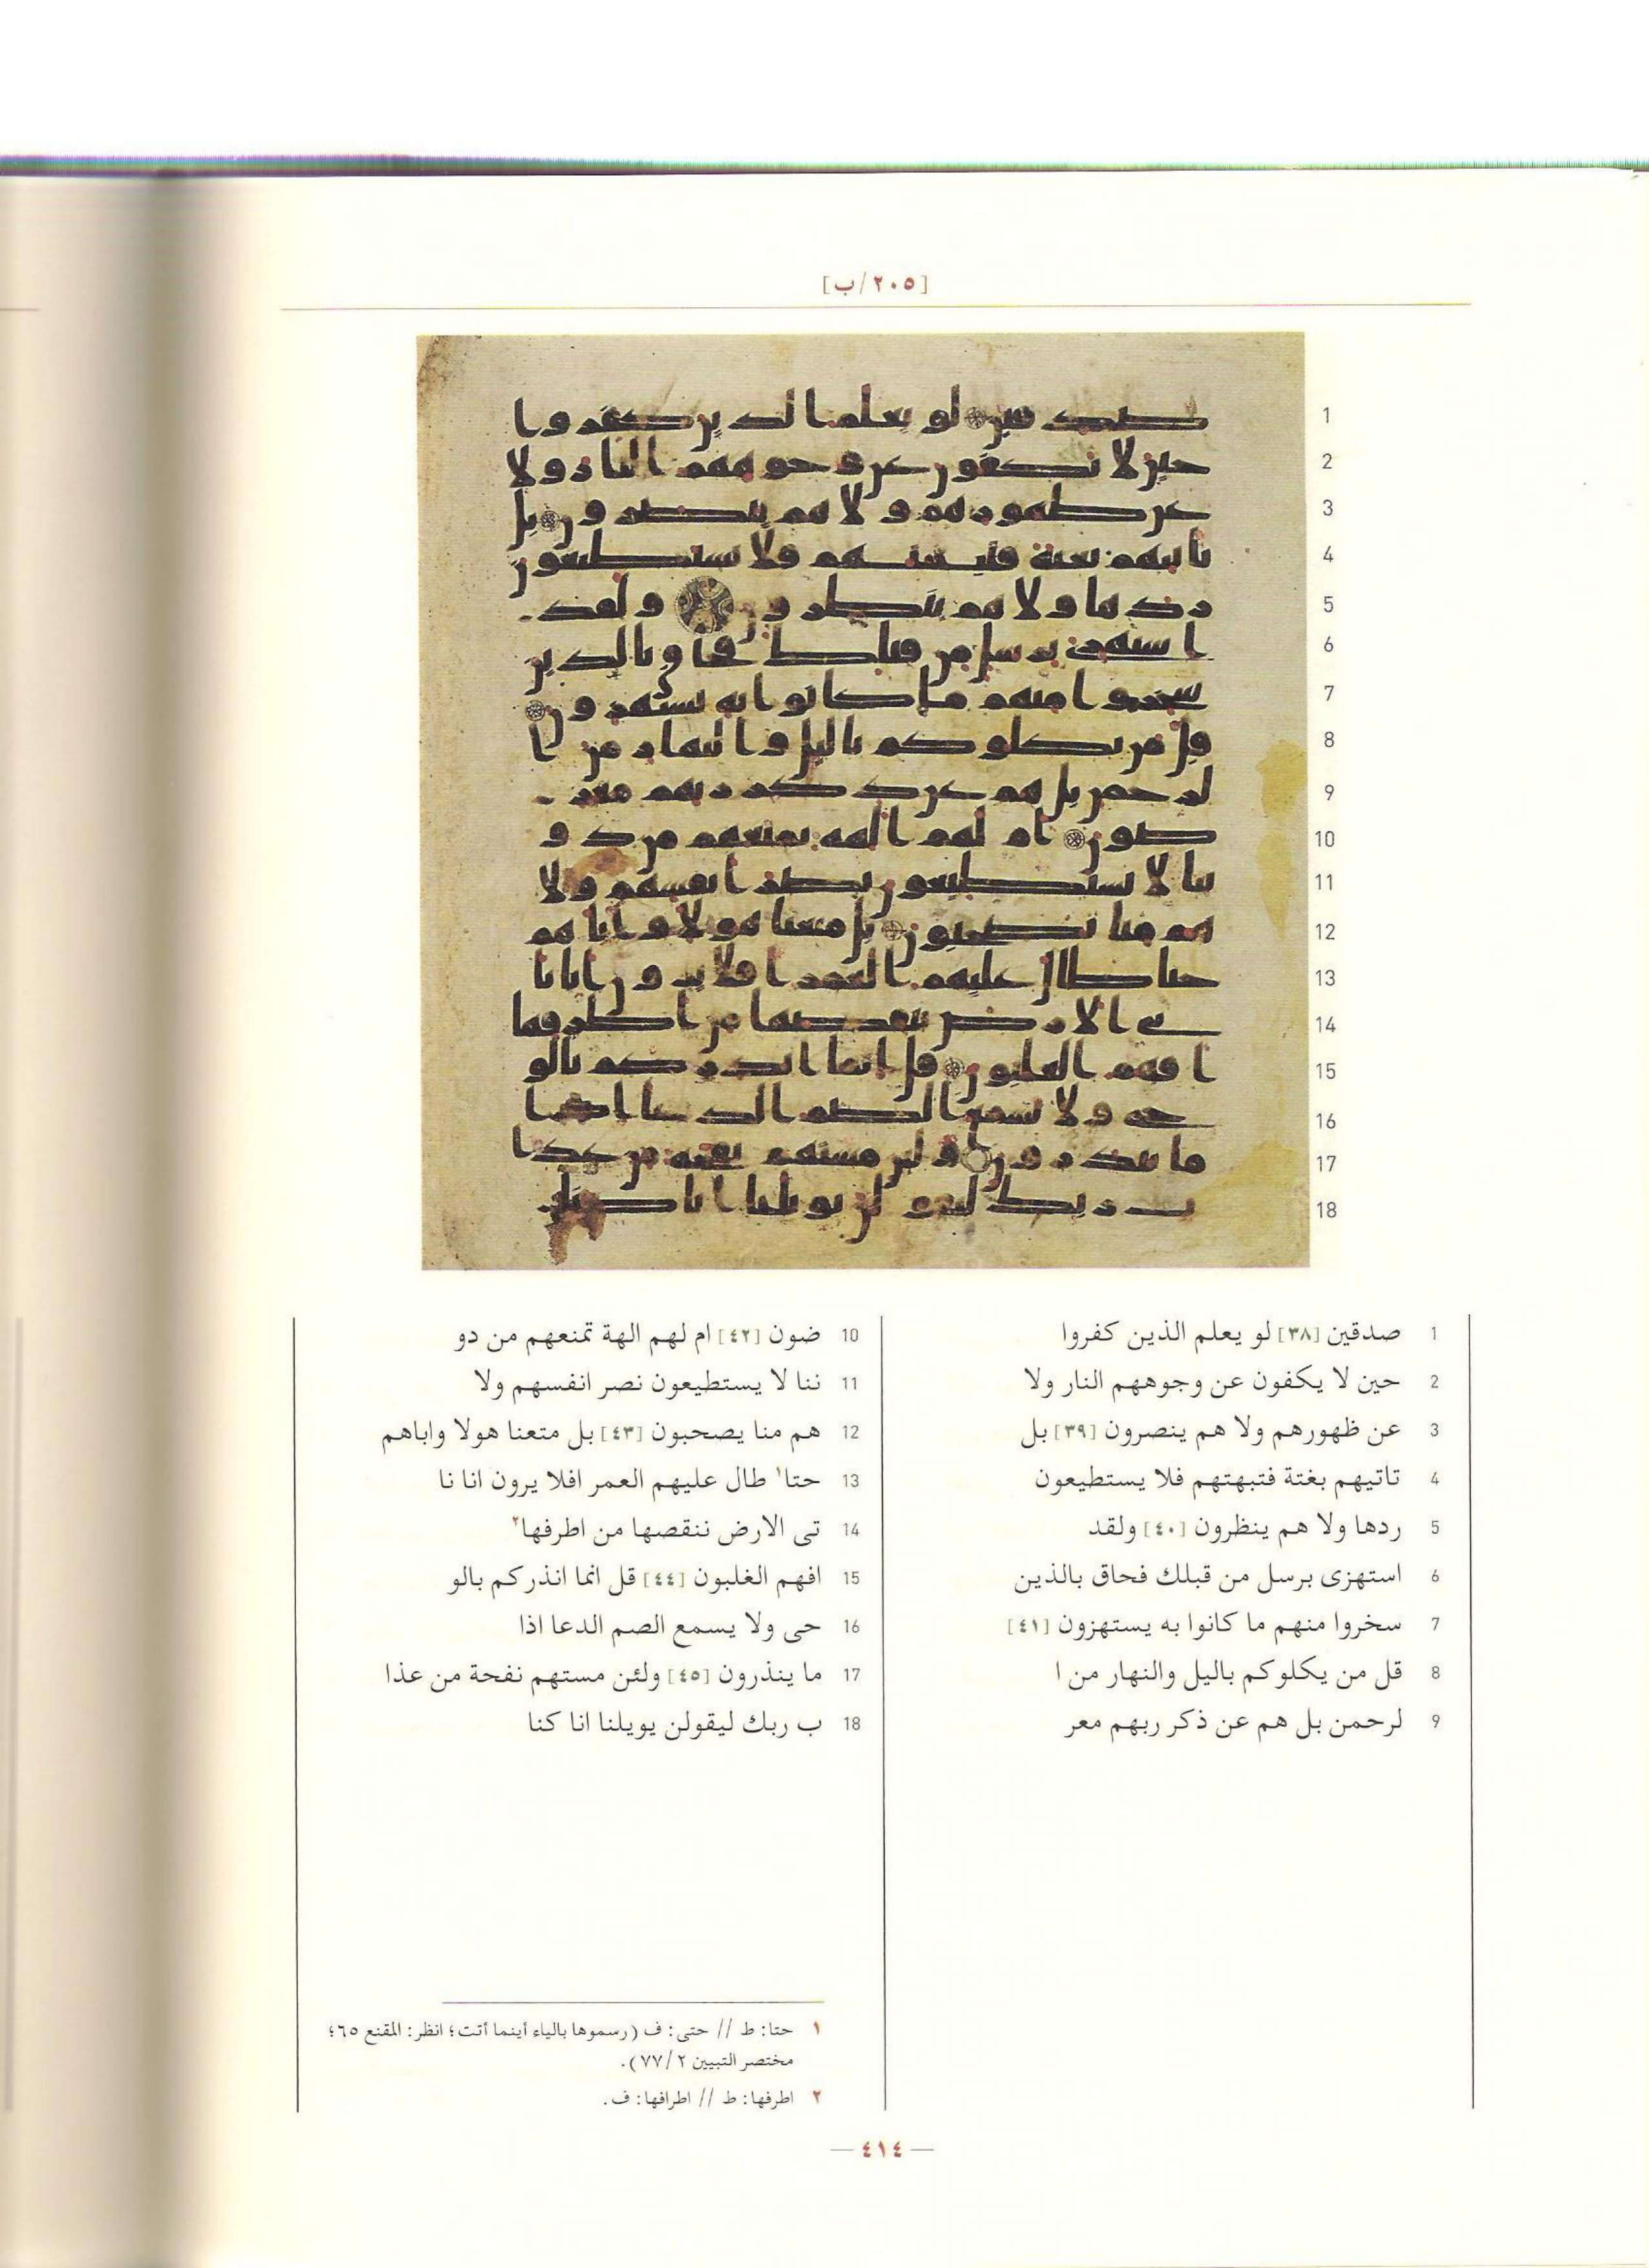 [٢٠٥/ب]
1
2
3
4
5
6
7
8
9
10
11
12
13
14
15
16
17
18
1 صدقين [٣٨] لو يعلم الذين كفروا
2 حين لا يكفون عن وجوههم النار ولا
3 عن ظهورهم ولا هم ينصرون [٣٩] بل
4 تاتيهم بغتة فتبهتهم فلا يستطيعون
5 ردها ولا هم ينظرون [٤٠] ولقد
6 استهزى برسل من قبلك فحاق بالذين
7 سخروا منهم ما كانوا به يستهزون [٤١]
8 قل من يكلوكم باليل والنهار من ا
9 لرحمن بل هم عن ذكر ربهم معر
10 ضون [٤٢] ام لهم الهة تمنعهم من دو
11 ننا لا يستطيعون نصر انفسهم ولا
12 هم منا يصحبون [٤٣] بل متعنا هولا واباهم
13 حتا١ طال عليهم العمر افلا يرون انا نا
14 تى الارض ننقصها من اطرفها٢
15 افهم الغلبون [٤٤] قل انما انذركم بالو
16 حى ولا يسمع الصم الدعا اذا
17 ما ينذرون [٤٥] ولئن مستهم نفحة من عذا
18 ب ربك ليقولن يويلنا انا كنا
١ حتا: ط // حتى: ف (رسموها بالياء أينما أتت؛ انظر: المقنع ٦٥؛
مختصر التبيين ٢/ ٧٧).
٢ اطرفها: ط // اطرافها: ف.
— ٤١٤ —